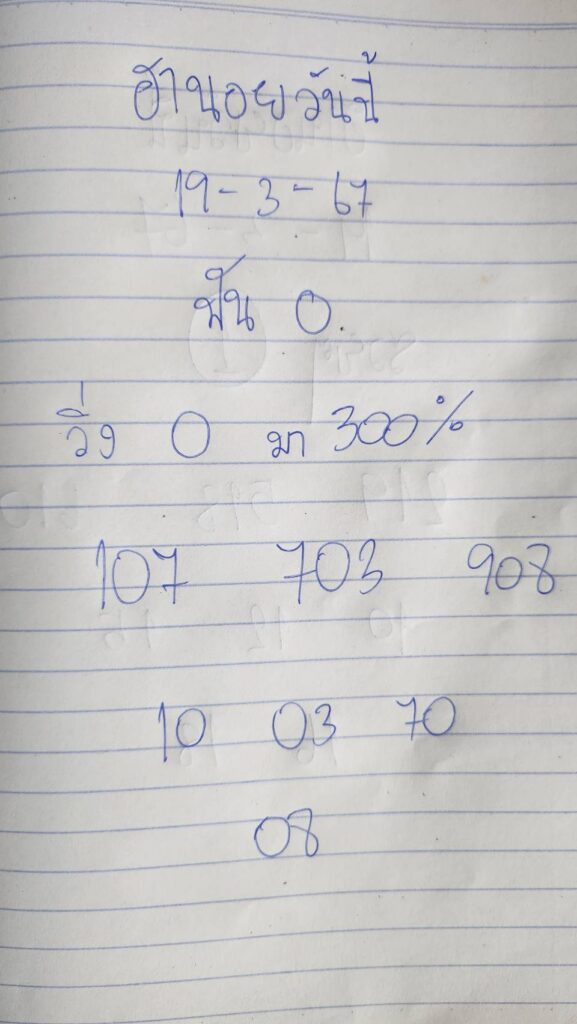 ฮานอยวันนี้
19-3-67
ฟัน 0.
วิ่ง 0 มา 300%
107 703 908
10 03 70
08